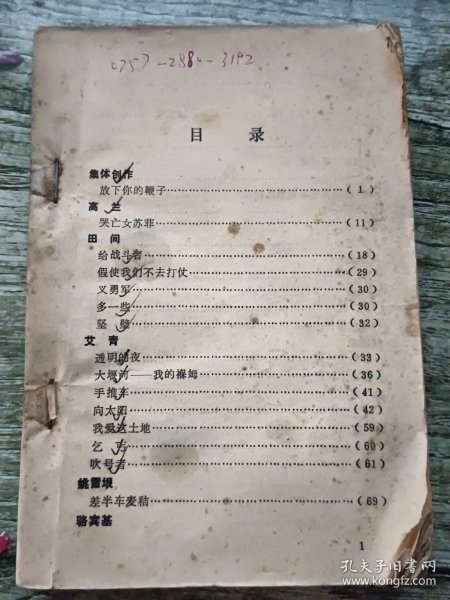 0757-2880-3192
目 录
集体创作
放下你的鞭子……………………………(1)
高 兰
哭亡女苏菲……………………………(11)
田 间
给战斗者……………………………(18)
假使我们不去打仗……………………………(29)
义勇军……………………………(30)
多一些……………………………(30)
坚 壁……………………………(32)
艾 青
透明的夜……………………………(33)
大堰河——我的褓姆……………………………(36)
手推车……………………………(41)
向太阳……………………………(42)
我爱这土地……………………………(59)
乞 丐……………………………(60)
吹号者……………………………(61)
姚雪垠
差半车麦秸……………………………(69)
骆宾基
1
孔夫子旧书网
www.kongfz.com